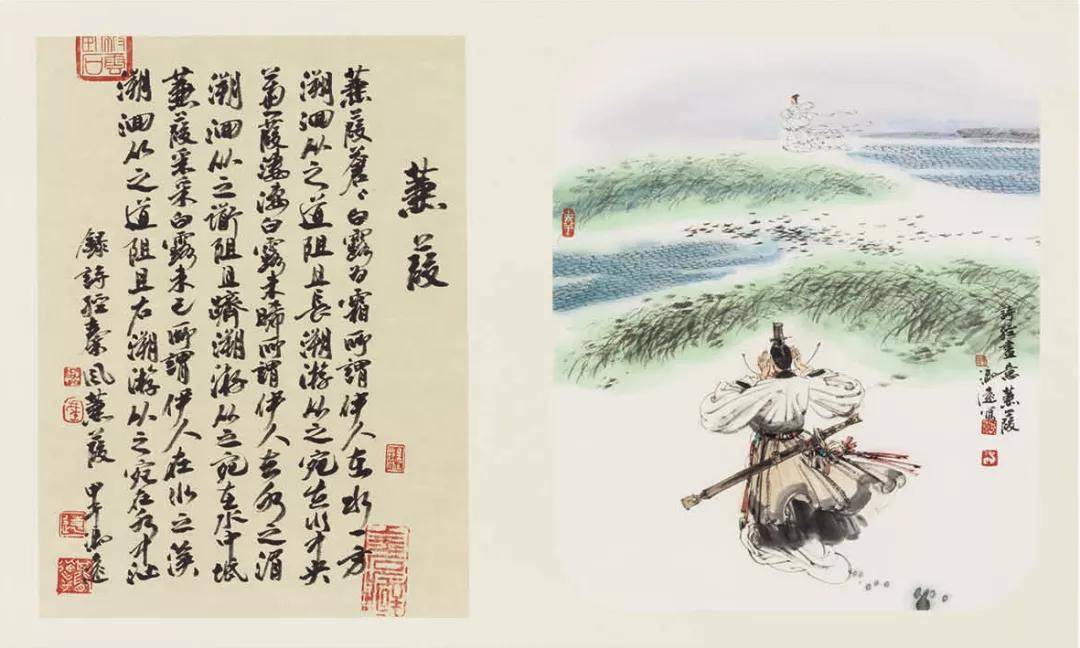 蒹葭
蒹葭蒼〻白露為霜所謂伊人在水一方
溯洄从之道阻且長溯游从之宛在水中央
蒹葭凄凄白露未晞所謂伊人在水之湄
溯洄从之衜阻且躋溯游从之宛在水中坻
蒹葭采采白露未已所謂伊人在水之涘
溯洄从之道阻且右溯游从之宛在水中沚
錄詩經秦風蒹葭 甲午馮遠
詩經畫意 蒹葭
馮遠寫